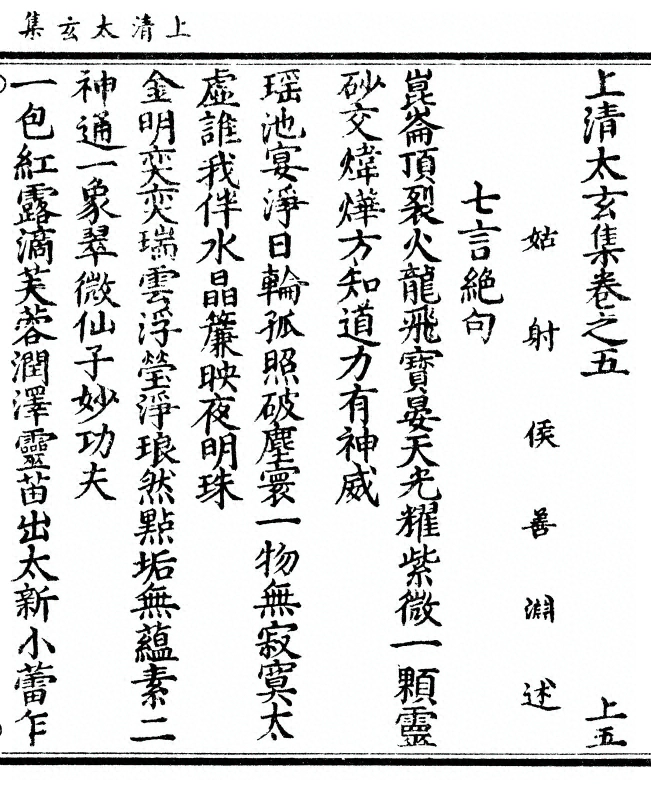 上清太玄集
上清太玄集卷之五 上五
姑射侯善淵述
七言絶句
崑崙頂裂火龍飛寶晏天光耀紫微一顆靈
砂交煒燁方知道力有神威
瑶池宴淨日輪孤照破塵寰一物無寂寞太
虛誰我伴水晶簾映夜明珠
金明奕奕瑞雲浮瑩淨琅然點垢無蘊素二
神通一象翠微仙子妙功夫
一包紅露滴芙蓉潤澤靈苗出太新小蕾乍